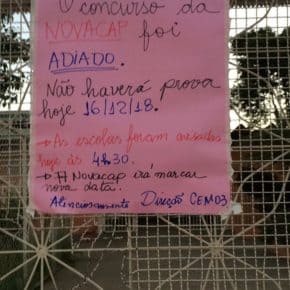 O concurso da
NOVACAP foi
ADIADO.
Não haverá prova
hoje 16/12/18.
→ As escolas foram avisadas
hoje às 4h30.
→ A Novacap irá marcar
nova data.
Atenciosamente Direção CEM03